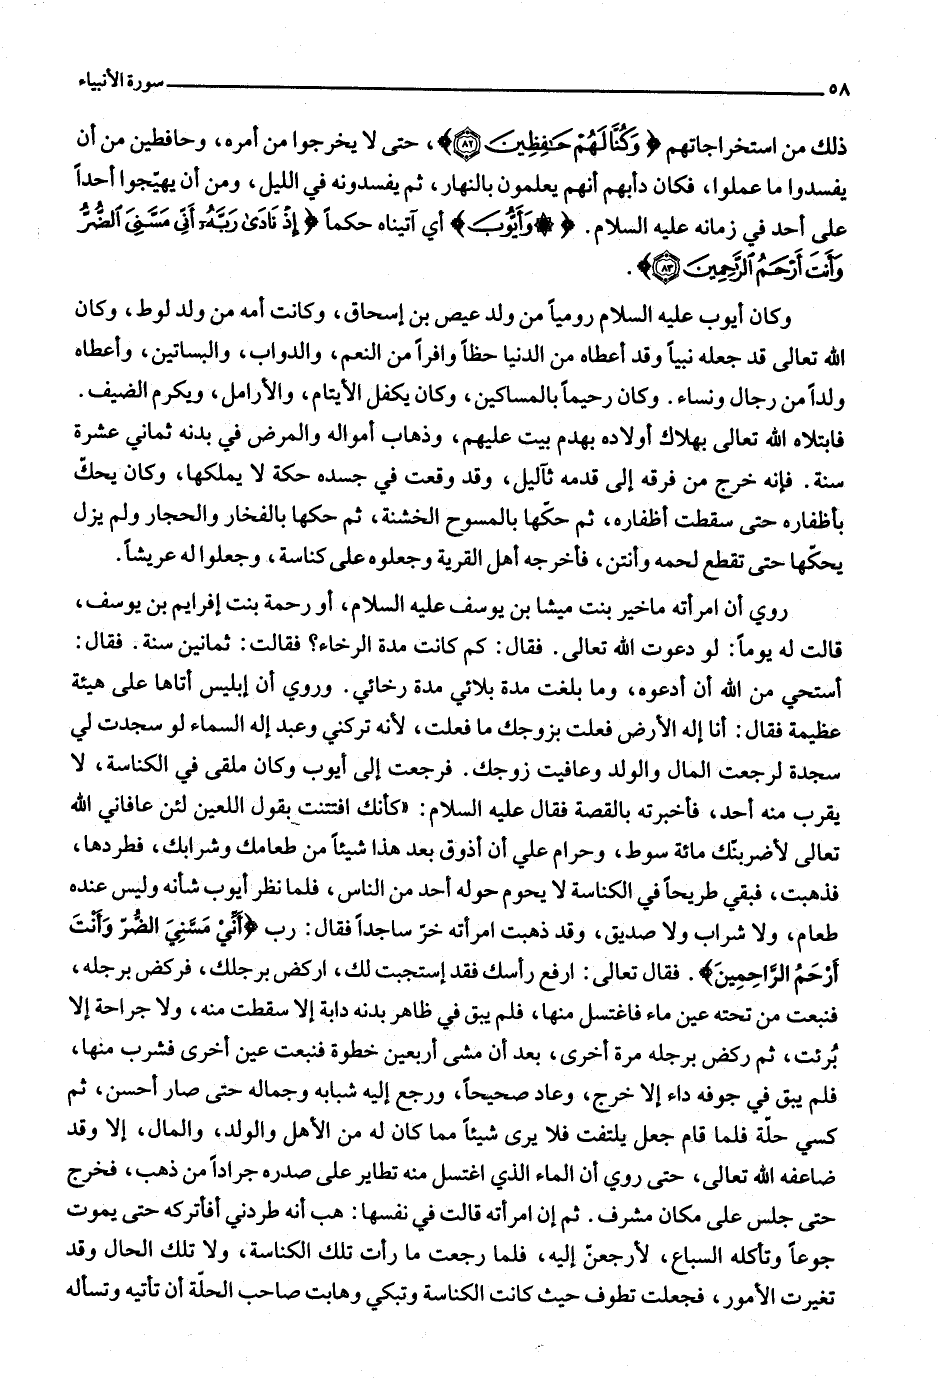 ٥٨ سورة الأنبياء
ذلك من استخراجاتهم ﴿ وَكُنَّا لَهُمْ حَٰفِظِينَ ٨٢﴾، حتى لا يخرجوا من أمره، وحافظين من أن
يفسدوا ما عملوا، فكان دأبهم أنهم يعلمون بالنهار، ثم يفسدونه في الليل، ومن أن يهيّجوا أحداً
على أحد في زمانه عليه السلام. ﴿ ۞ وَأَيُّوبَ﴾ أي آتيناه حكماً ﴿ إِذْ نَادَىٰ رَبَّهُۥٓ أَنِّي مَسَّنِيَ ٱلضُّرُّ
وَأَنتَ أَرْحَمُ ٱلرَّٰحِمِينَ ٨٣﴾.
وكان أيوب عليه السلام رومياً من ولد عيص بن إسحاق، وكانت أمه من ولد لوط، وكان
الله تعالى قد جعله نبياً وقد أعطاه من الدنيا حظاً وافراً من النعم، والدواب، والبساتين، وأعطاه
ولداً من رجال ونساء. وكان رحيماً بالمساكين، وكان يكفل الأيتام، والأرامل، ويكرم الضيف.
فابتلاه الله تعالى بهلاك أولاده بهدم بيت عليهم، وذهاب أمواله والمرض في بدنه ثماني عشرة
سنة. فإنه خرج من فرقه إلى قدمه ثآليل، وقد وقعت في جسده حكة لا يملكها، وكان يحكّ
بأظفاره حتى سقطت أظفاره، ثم حكّها بالمسوح الخشنة، ثم حكها بالفخار والحجار ولم يزل
يحكّها حتى تقطع لحمه وأنتن، فأخرجه أهل القرية وجعلوه على كناسة، وجعلوا له عريشاً.
روي أن امرأته ماخير بنت ميشا بن يوسف عليه السلام، أو رحمة بنت إفرايم بن يوسف،
قالت له يوماً: لو دعوت الله تعالى. فقال: كم كانت مدة الرخاء؟ فقالت: ثمانين سنة. فقال:
أستحي من الله أن أدعوه، وما بلغت مدة بلائي مدة رخائي. وروي أن إبليس أتاها على هيئة
عظيمة فقال: أنا إله الأرض فعلت بزوجك ما فعلت، لأنه تركني وعبد إله السماء لو سجدت لي
سجدة لرجعت المال والولد وعافيت زوجك. فرجعت إلى أيوب وكان ملقى في الكناسة، لا
يقرب منه أحد، فأخبرته بالقصة فقال عليه السلام: «كأنك افتتنت بقول اللعين لئن عافاني الله
تعالى لأضربنّك مائة سوط، وحرام علي أن أذوق بعد هذا شيئاً من طعامك وشرابك، فطردها،
فذهبت، فبقي طريحاً في الكناسة لا يحوم حوله أحد من الناس، فلما نظر أيوب شأنه وليس عنده
طعام، ولا شراب ولا صديق، وقد ذهبت امرأته خرّ ساجداً فقال: رب ﴿أَنِّيْ مَسَّنِيَ الضُّرّ وَأَنْتَ
أَرْحَمُ الرَّاحِمِينَ﴾. فقال تعالى: ارفع رأسك فقد إستجبت لك، اركض برجلك، فركض برجله،
فنبعت من تحته عين ماء فاغتسل منها، فلم يبق في ظاهر بدنه دابة إلا سقطت منه، ولا جراحة إلا
بُرئت، ثم ركض برجله مرة أخرى، بعد أن مشى أربعين خطوة فنبعت عين أخرى فشرب منها،
فلم يبق في جوفه داء إلا خرج، وعاد صحيحاً، ورجع إليه شبابه وجماله حتى صار أحسن، ثم
كسي حلّة فلما قام جعل يلتفت فلا يرى شيئاً مما كان له من الأهل والولد، والمال، إلا وقد
ضاعفه الله تعالى، حتى روي أن الماء الذي اغتسل منه تطاير على صدره جراداً من ذهب، فخرج
حتى جلس على مكان مشرف. ثم إن امرأته قالت في نفسها: هب أنه طردني أفأتركه حتى يموت
جوعاً وتأكله السباع، لأرجعنّ إليه، فلما رجعت ما رأت تلك الكناسة، ولا تلك الحال وقد
تغيرت الأمور، فجعلت تطوف حيث كانت الكناسة وتبكي وهابت صاحب الحلّة أن تأتيه وتسأله